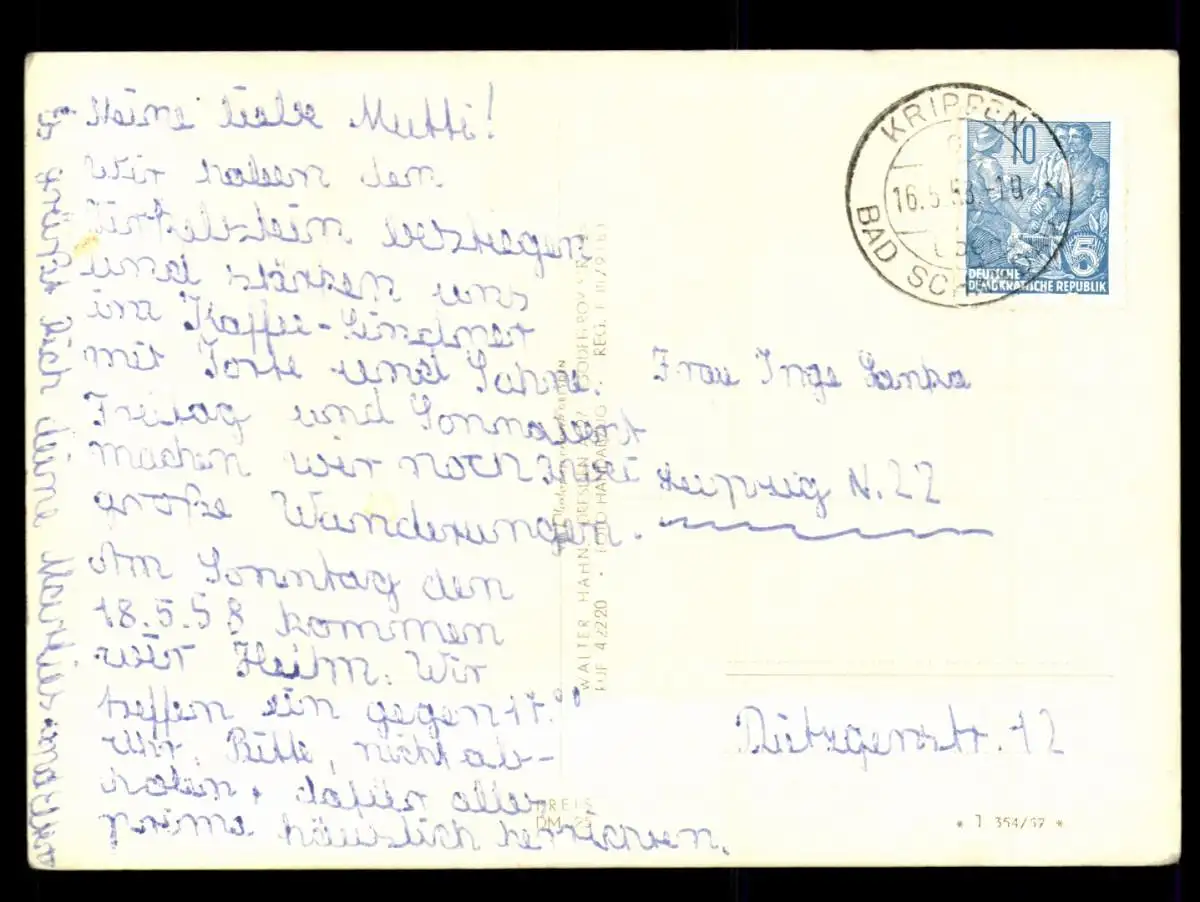 Meine liebe Mutti!
Wir haben den
Zirkelstein bestiegen
und stärken uns
im Kaffee-Lindner
mit Torte und Sahne.
Freitag und Sonnabend
machen wir noch zwei
große Wanderungen.
Am Sonntag den
18.5.58 kommen
wir Heim. Wir
treffen ein gegen 17.
Uhr. Bitte, nicht ab-
holen, dafür alles
prima häuslich herrichten.
Es grüßt Dich deine
KRIPPEN
16.5.58.-10
BAD SCHANDAU
10
5
DEUTSCHE
DEMOKRATISCHE REPUBLIK
Frau Inge
Leipzig N.22
12
WALTER HAHN, DRESDEN A 27
FUF 4/2220 · FOTO HANDABZUG · REG. I m/9161
PREIS
DM -.25
* J 354/57 *